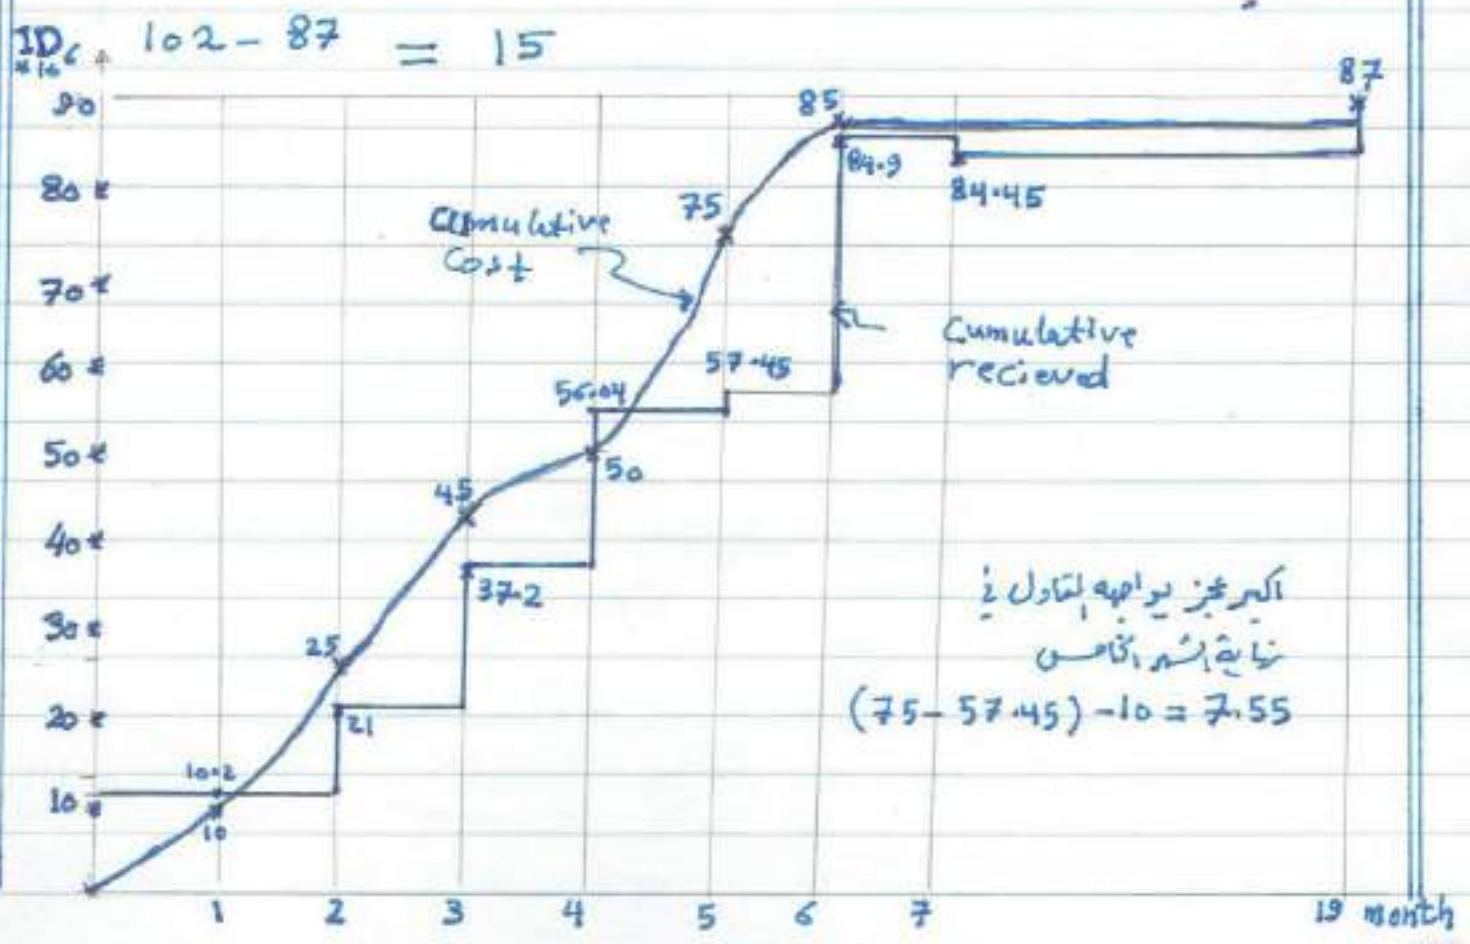 102 - 87 = 15
ID
*10⁶
90
80
70
60
50
40
30
20
10
87
85
84.9
84.45
75
Cumulative
Cost
Cumulative
recieved
57.45
56.04
50
45
37.2
25
21
10.2
10
اكبر عجز يواجه المقاول في
نهاية الشهر الخامس
(75 - 57.45) - 10 = 7.55
1 2 3 4 5 6 7 19 month